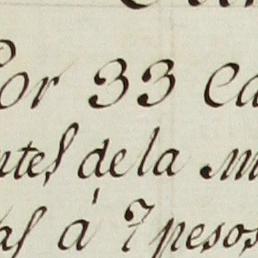 Por 33 ca
ntes de la m
as á 7 pesos